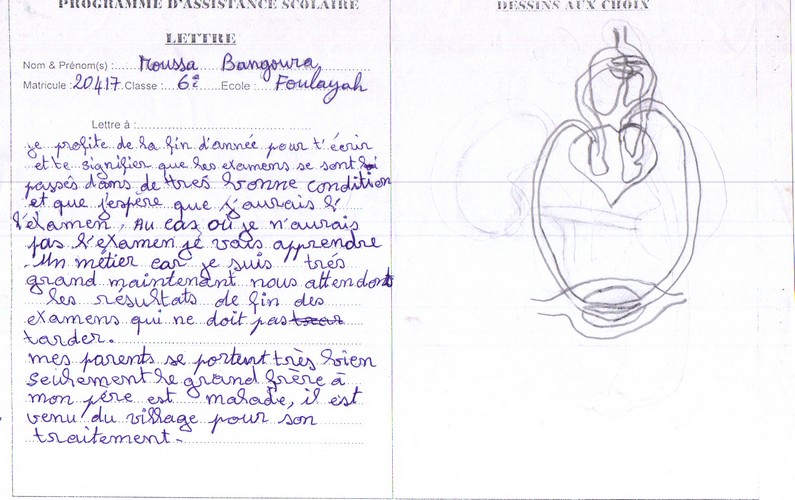 PROGRAMME D'ASSISTANCE SCOLAIRE
LETTRE
Nom & Prénom(s) : Moussa Bangoura
Matricule : 20417 Classe : 6è Ecole : Foulayah
Lettre à :
je profite de la fin d'année pour t'écrir
et te signifier que les examens se sont
passés dams de très bonne condition
et que j'espère que j'aurais l'
l'éxamen, Au cas où je n'aurais
pas l'éxamen je vais apprendre
Un métier car je suis trés
grand maintenant nous attendons
les résultats de fin des
examens qui ne doit pas
tarder.
mes parents se portent très bien
seulement le grand frère à
mon père est malade, il est
venu du village pour son
traitement-
DESSINS AUX CHOIX